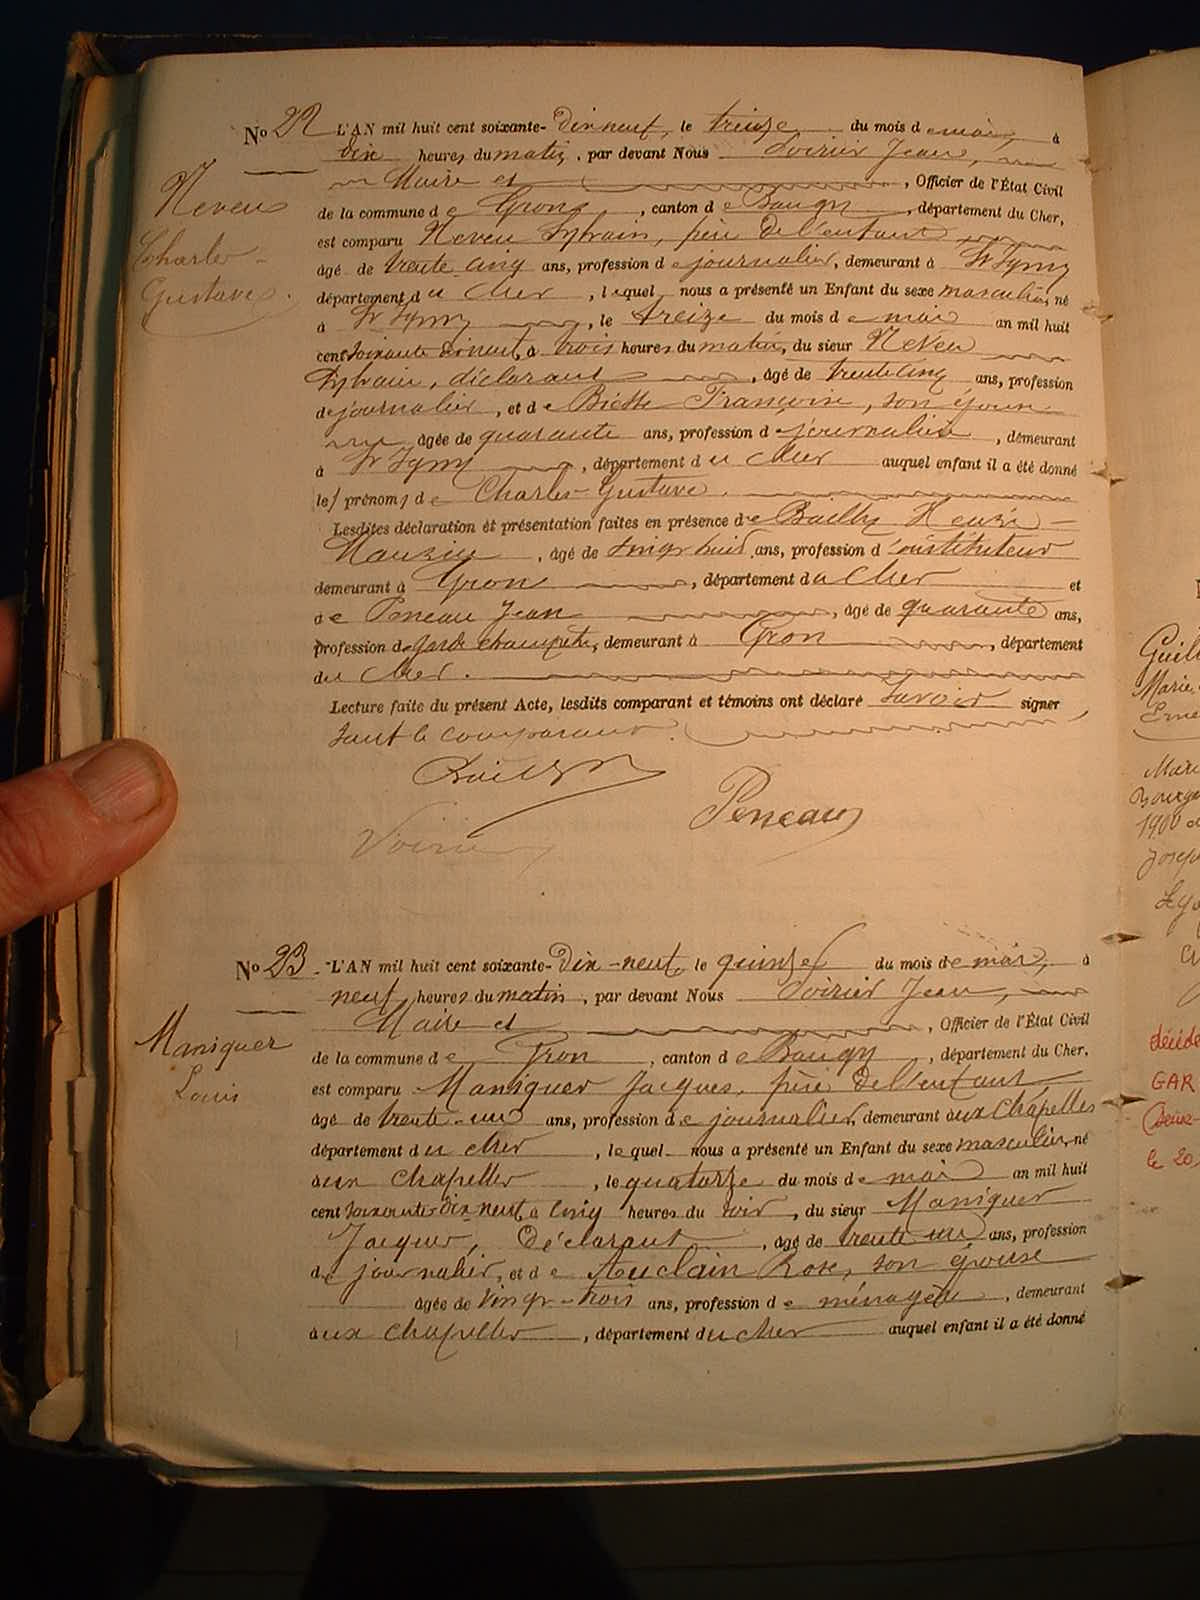 No 22 L'AN mil huit cent soixante-Dix neuf, le treize du mois de mai, à
dix heures du matin, par devant Nous Voirier Jean,
Maire et , Officier de l'État Civil
Neveu
de la commune de Gron, canton de Baugy, département du Cher,
est comparu Neveu Sylvain, père de l'enfant
Charles-
âgé de trente cinq ans, profession de journalier, demeurant à St Igny
Gustave.
département du Cher, lequel nous a présenté un Enfant du sexe masculin, né
à St Igny, le treize du mois de mai an mil huit
cent soixante dix neuf, à trois heures du matin, du sieur Neveu
Sylvain, déclarant, âgé de trente cinq ans, profession
de journalier, et de Françoise, son épouse
âgée de quarante ans, profession de journalière, demeurant
à St Igny, département du Cher auquel enfant il a été donné
les prénoms de Charles-Gustave.
Lesdites déclaration et présentation faites en présence de Bailly Henri-
, âgé de vingt huit ans, profession d'instituteur
demeurant à Gron, département du Cher et
de Peneau Jean, âgé de quarante ans,
profession de garde champêtre, demeurant à Gron, département
du Cher.
Lecture faite du présent Acte, lesdits comparant et témoins ont déclaré savoir signer
sauf le comparant.
Bailly
Peneau
Voirier
No 23. L'AN mil huit cent soixante-Dix-neuf, le quinze du mois de mai, à
neuf heures du matin, par devant Nous Voirier Jean,
Maire et , Officier de l'État Civil
Maniquer
de la commune de Gron, canton de Baugy, département du Cher,
Louis
est comparu Maniquer Jacques, père de l'enfant,
âgé de trente-un ans, profession de journalier, demeurant aux Chapelles
département du Cher, lequel nous a présenté un Enfant du sexe masculin, né
aux Chapelles, le quatorze du mois de mai an mil huit
cent soixante dix neuf, à cinq heures du soir, du sieur Maniquer
Jacques, Déclarant, âgé de trente un ans, profession
de journalier, et de Auclain Rose, son épouse
âgée de vingt-trois ans, profession de ménagère, demeurant
aux Chapelles, département du Cher auquel enfant il a été donné
Marie
1900
GAR
le 20